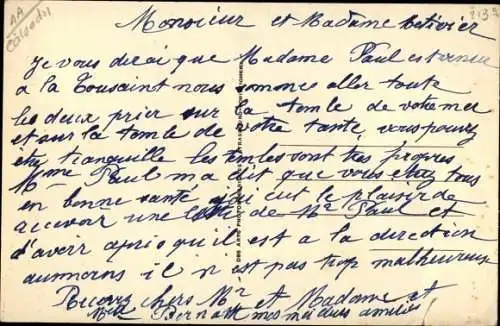 1A
Calvados
Monsieur et Madame Letivier
Je vous dirai que Madame Paul est venue
a la Toussaint nous somme aller toute
les deux prier sur la tombe de votre mer
et sur la tombe de votre tante, vous pouvez
etre tranquille les tombes sont tres propres
Mme Paul ma dit que vous etiez tous
en bonne santé jai eut le plaisir de
accevoir une de Mr Paul et
d'averr apris qu'il est a la direction
aumoins il n'est pas trop malheureux
Recevez chers Mr et Madame et
Mlle mes amities